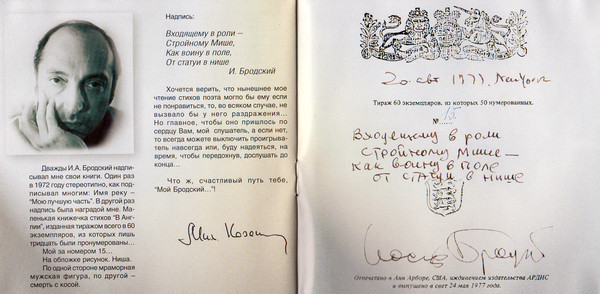 Надпись:
Входящему в роли –
Стройному Мише,
Как воину в поле,
От статуи в нише
И. Бродский
Хочется верить, что нынешнее мое
чтение стихов поэта могло бы ему если
не понравиться, то, во всяком случае, не
вызвало бы у него раздражения...
Но главное, чтобы оно пришлось по
сердцу Вам, мой слушатель, а если нет,
то всегда можете выключить проигрыва-
тель навсегда или, буду надеяться, на
время, чтобы передохнув, дослушать до
конца...
Что ж, счастливый путь тебе,
"Мой Бродский..."!
Дважды И.А. Бродский надпи-
сывал мне свои книги. Один раз
в 1972 году стереотипно, как под-
писывал многим: Имя реку –
"Мою лучшую часть". В другой раз
надпись была наградой мне. Ма-
ленькая книжечка стихов "В Анг-
лии", изданная тиражом всего в 60
экземпляров, из которых лишь
тридцать были пронумерованы...
Мой за номером 15...
На обложке рисунок. Ниша.
По одной стороне мраморная
мужская фигура, по другой –
смерть с косой.
20 окт 1977, New York
Тираж 60 экземпляров, из которых 50 нумерованных.
№ 15
Входящему в роли
стройному Мише –
как воину в поле
от статуи в нише
Иосиф Бродский
Отпечатано в Анн Арборе, США, иждивением издательства АРДИС
и выпущено в свет 24 мая 1977 года.